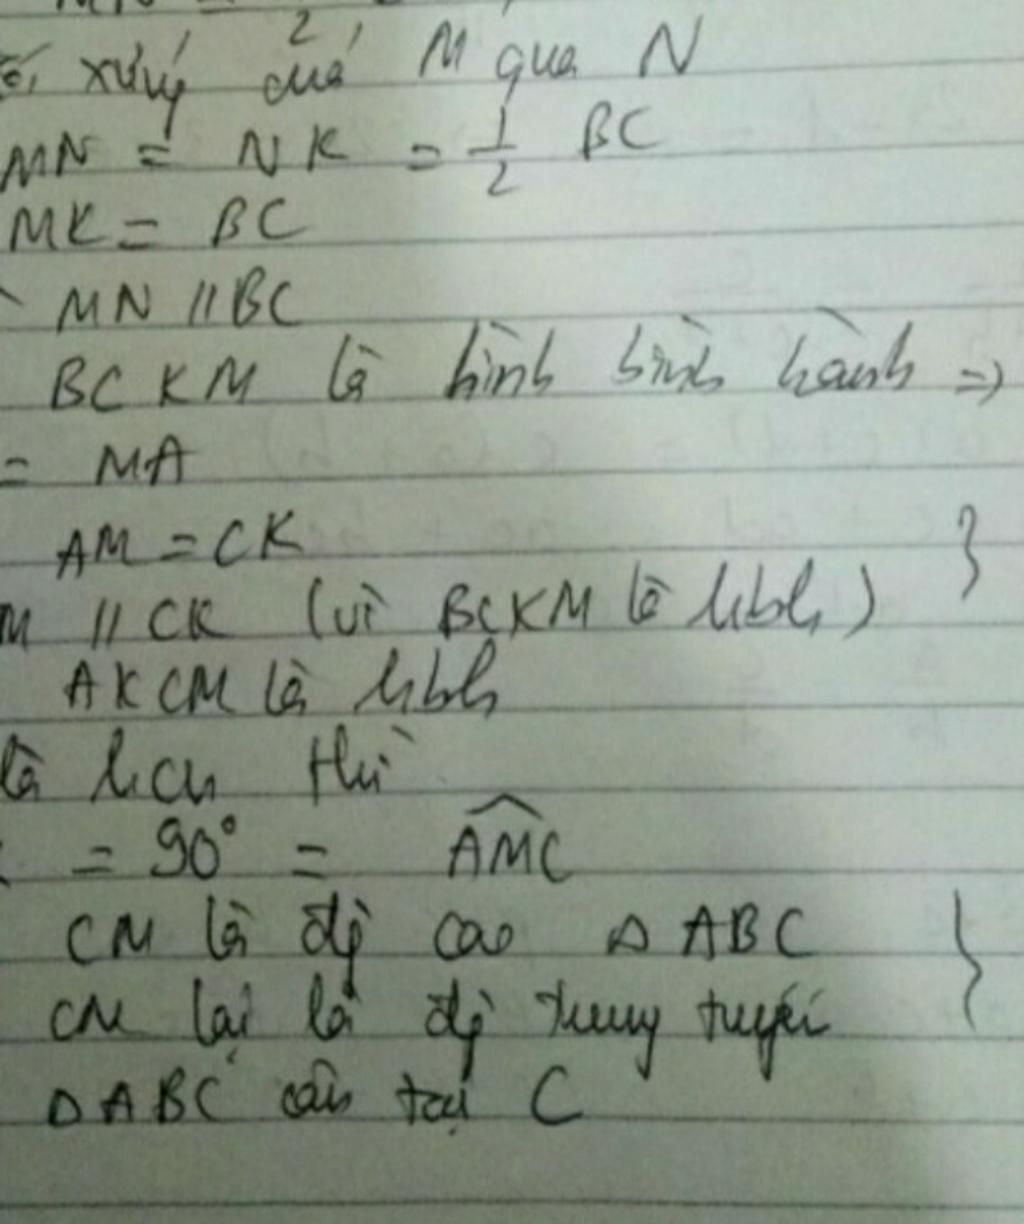 xứng của M qua N
MN = NK = 1/2 BC
MK = BC
MN // BC
BCKM là hình bình hành =>
= MA
AM = CK }
M // CK (vì BCKM là hbh)
AKCM là hbh
là hcn thì
= 90° = \widehat{AMC}
CM là đg cao △ ABC }
CM lại là đg trung tuyến
△ ABC cân tại C